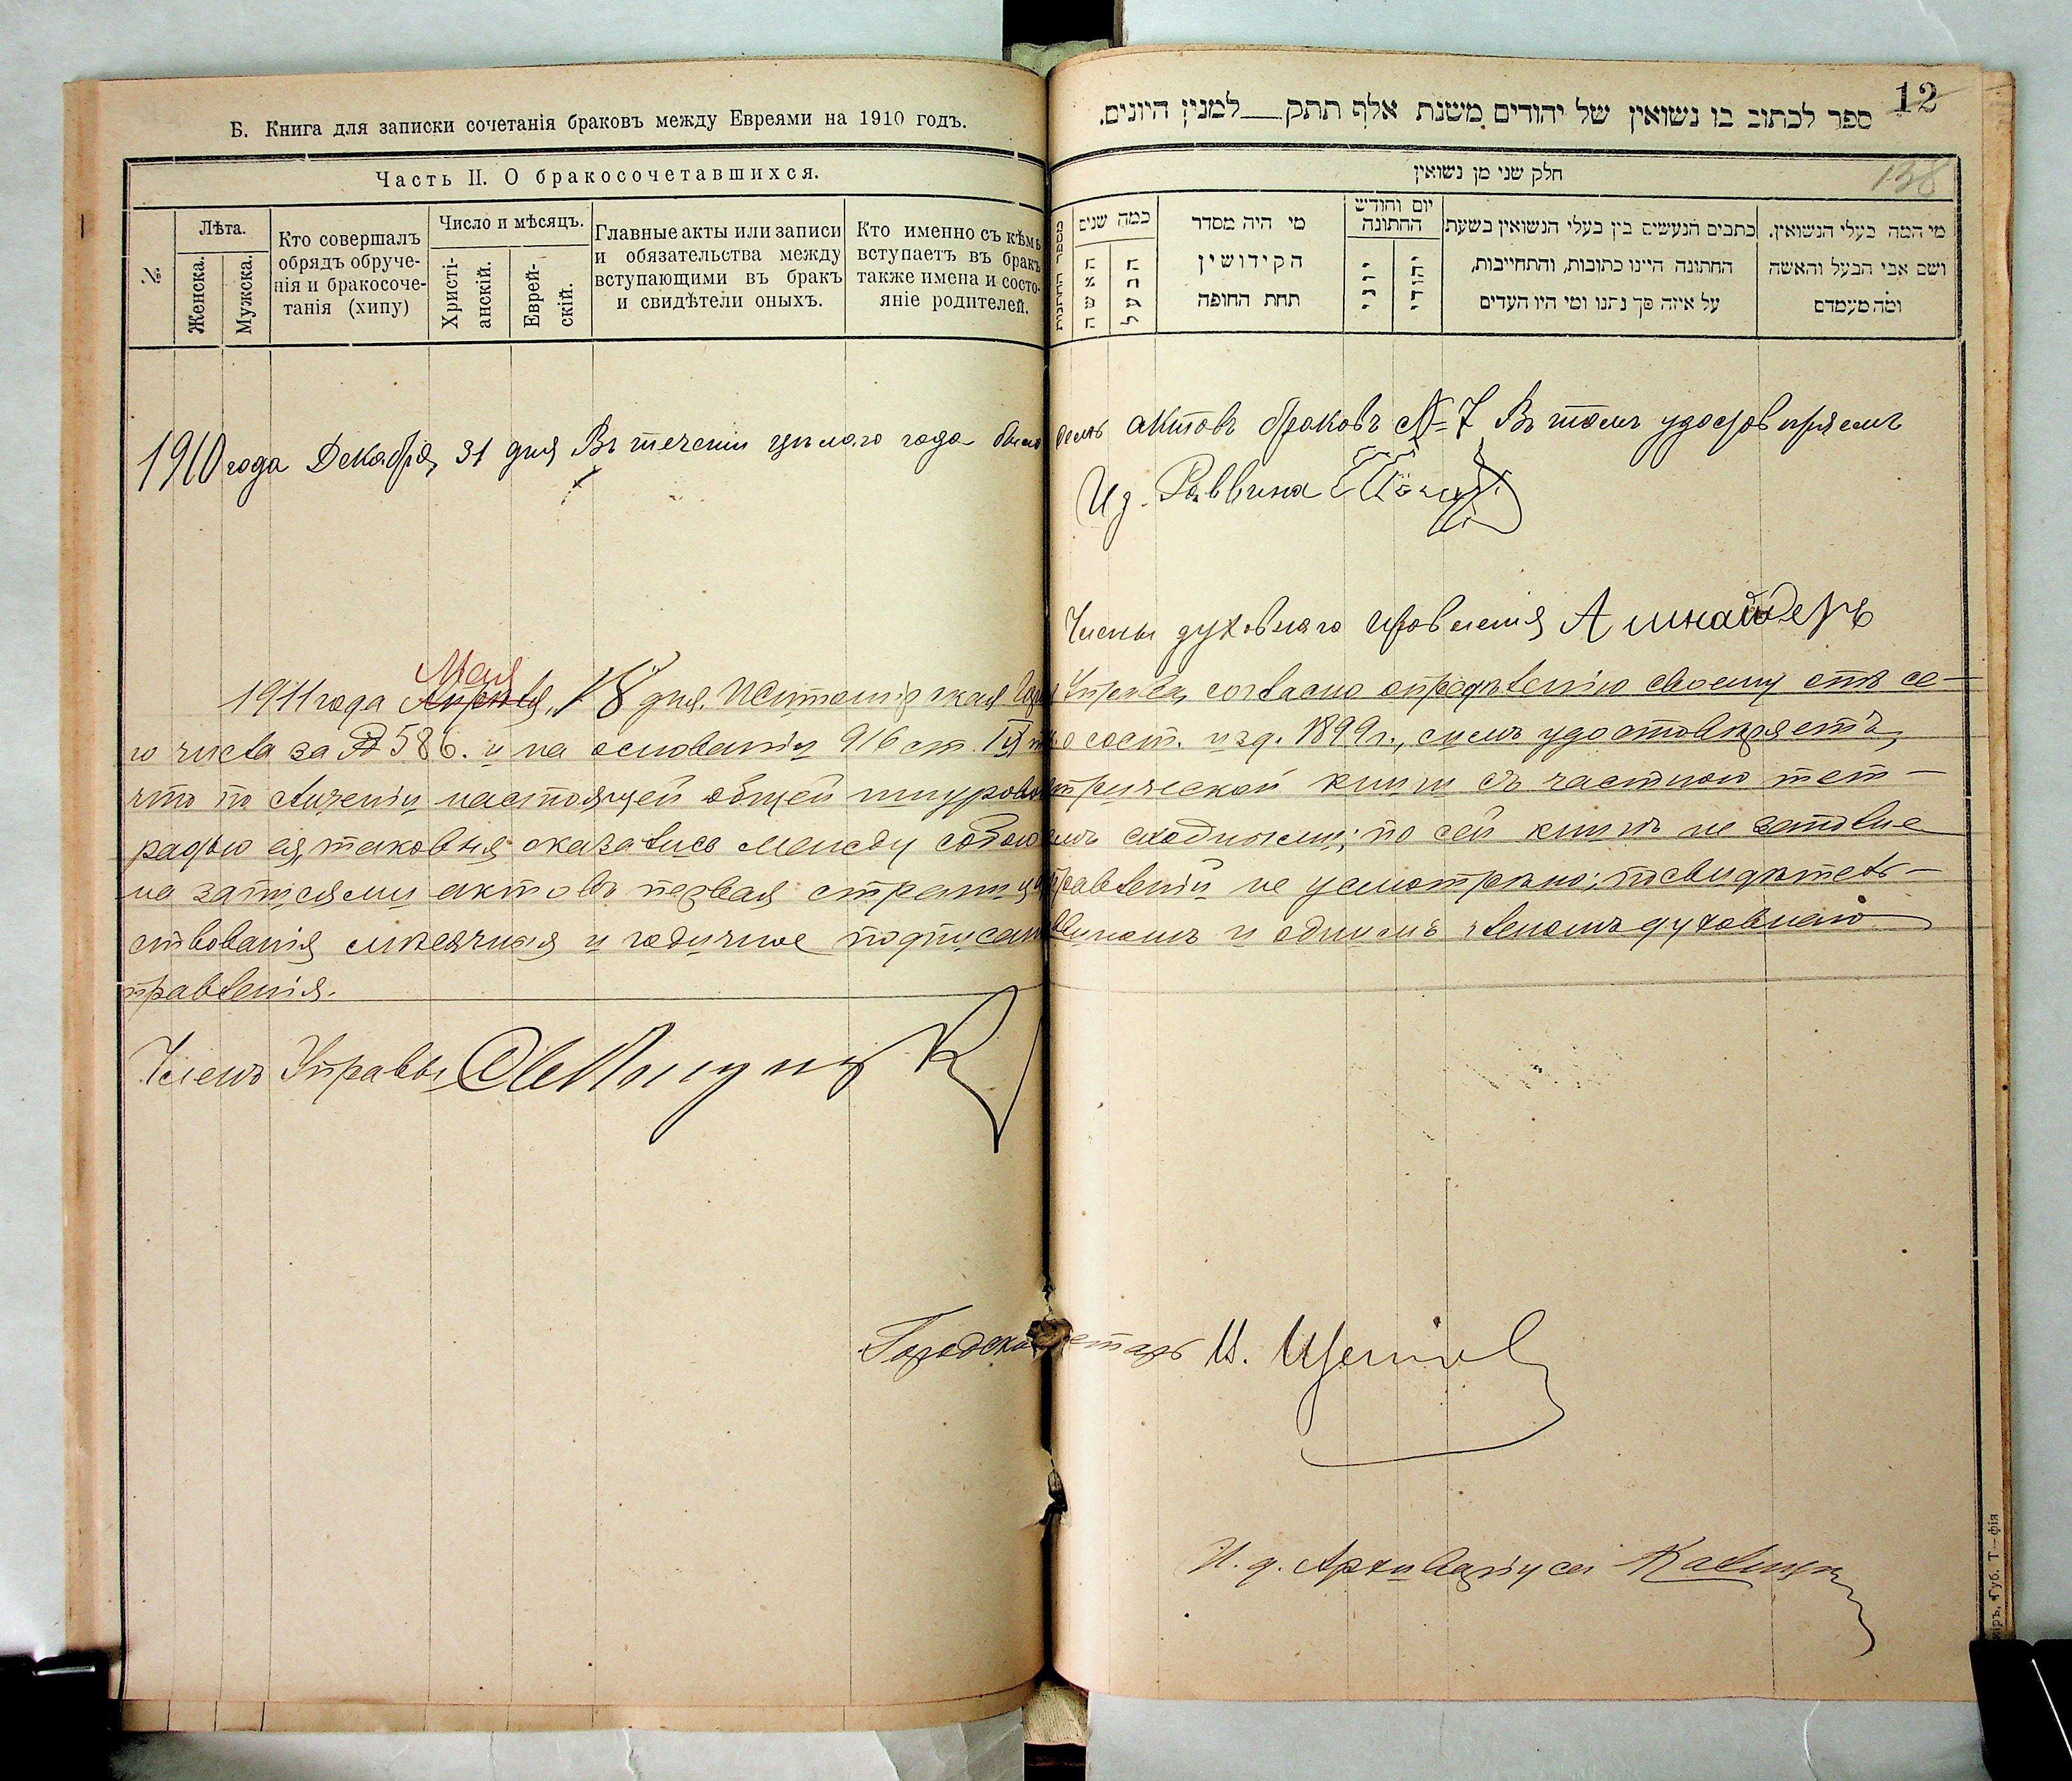 Б. Книга для записки сочетанія браковъ между Евреями на 1910 годъ.
Часть II. О бракосочетавшихся.
№.
Лѣта.
Женска.
Мужска.
Кто совершалъ
обрядъ обруче-
нія и бракосоче-
танія (хипу)
Число и мѣсяцъ.
Христі-
анскій.
Еврей-
скій.
Главные акты или записи
и обязательства между
вступающими въ бракъ
и свидѣтели оныхъ.
Кто именно съ кѣмъ
вступаетъ въ бракъ
также имена и состо-
яніе родителей.
12
ספר לכתוב בו נשואין של יהודים משנת אלף תתק___למנין היונים.
138
חלק שני מן נשואין
מספר החתונות
כמה שנים
האשה
הבעל
מי היה מסדר
הקידושין
תחת החופה
יום וחודש
החתונה
יוני
יהודי
כתבים הנעשים בין בעלי הנשואין בשעת
החתונה היינו כתובות, והתחייבות,
על איזה סך נתנו ומי היו העדים
מי המה בעלי הנשואין,
ושם אבי הבעל והאשה
ומה מעמדם
1910 года Декабря 31 дня Въ теченіи цѣлаго года было актовъ браковъ № 7 Въ томъ удостовѣряемъ
Из. Раввина
Члены духовнаго правленія
Мая
1911 года Апрѣля, 18 дня. Житомірская Управа, согласно опредѣленію своему отъ се-
го числа за № 586. и на основаніи 916 ст. IX т. о сост. изд. 1899 г., симъ удостовѣряетъ,
что по сличеніи настоящей общей шнуровой метрической книги съ частною тет-
радью ея, таковыя оказались между собою сходными; по сей книгѣ не
на записями актовъ первая страница не усмотрѣно; посвидѣтель-
ствованія мѣсячныя и годичное подписаны и однимъ членомъ духовнаго
правленія.
Членъ Управы
Городской
И. д. Архиваріуса
Губ. Т—фія